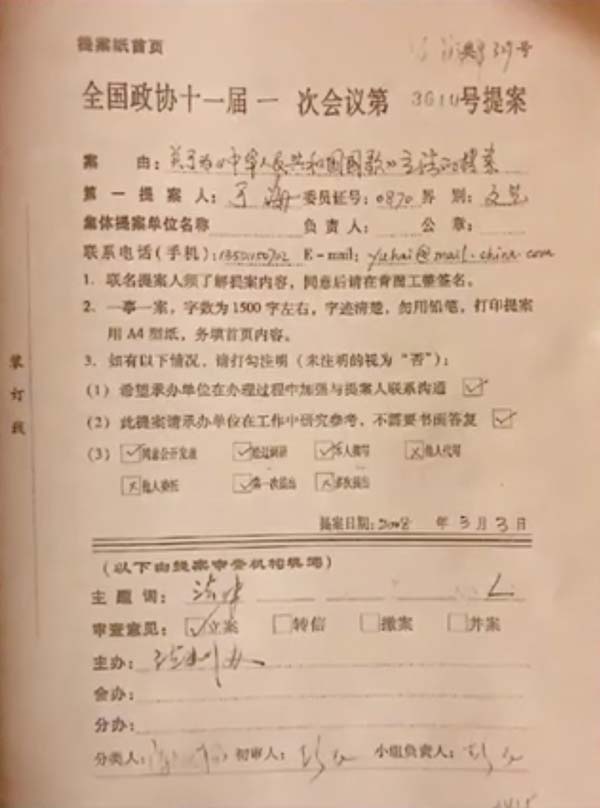 提案纸首页
号
全国政协十一届一次会议第3610号提案
案由：关于为《中华人民共和国国歌》立法的提案
第一提案人：于海 委员证号：0870 界别：文艺
集体提案单位名称 负责人： 公章：
联系电话（手机）： E-mail: yuhai@mail.china.com
1. 联名提案人须了解提案内容，同意后请在背面工整签名。
2. 一事一案，字数为1500字左右，字迹清楚，勿用铅笔，打印提案
用A4型纸，务填首页内容。
3. 如有以下情况，请打勾注明（未注明的视为“否”）：
（1）希望承办单位在办理过程中加强与提案人联系沟通 ☑
（2）此提案请承办单位在工作中研究参考，不需要书面答复 ☑
（3）☑同意公开发表 ☑经过调研 ☑本人撰写 ☒他人代写
☒他人委托 ☑第一次提出 ☒多次提出
提案日期：2008年3月3日
装订线
（以下由提案审查机构填写）
主题词：法律
审查意见：☑立案 □转信 □撤案 □并案
主办：法制办
会办：
分办：
分类人： 初审人： 小组负责人：